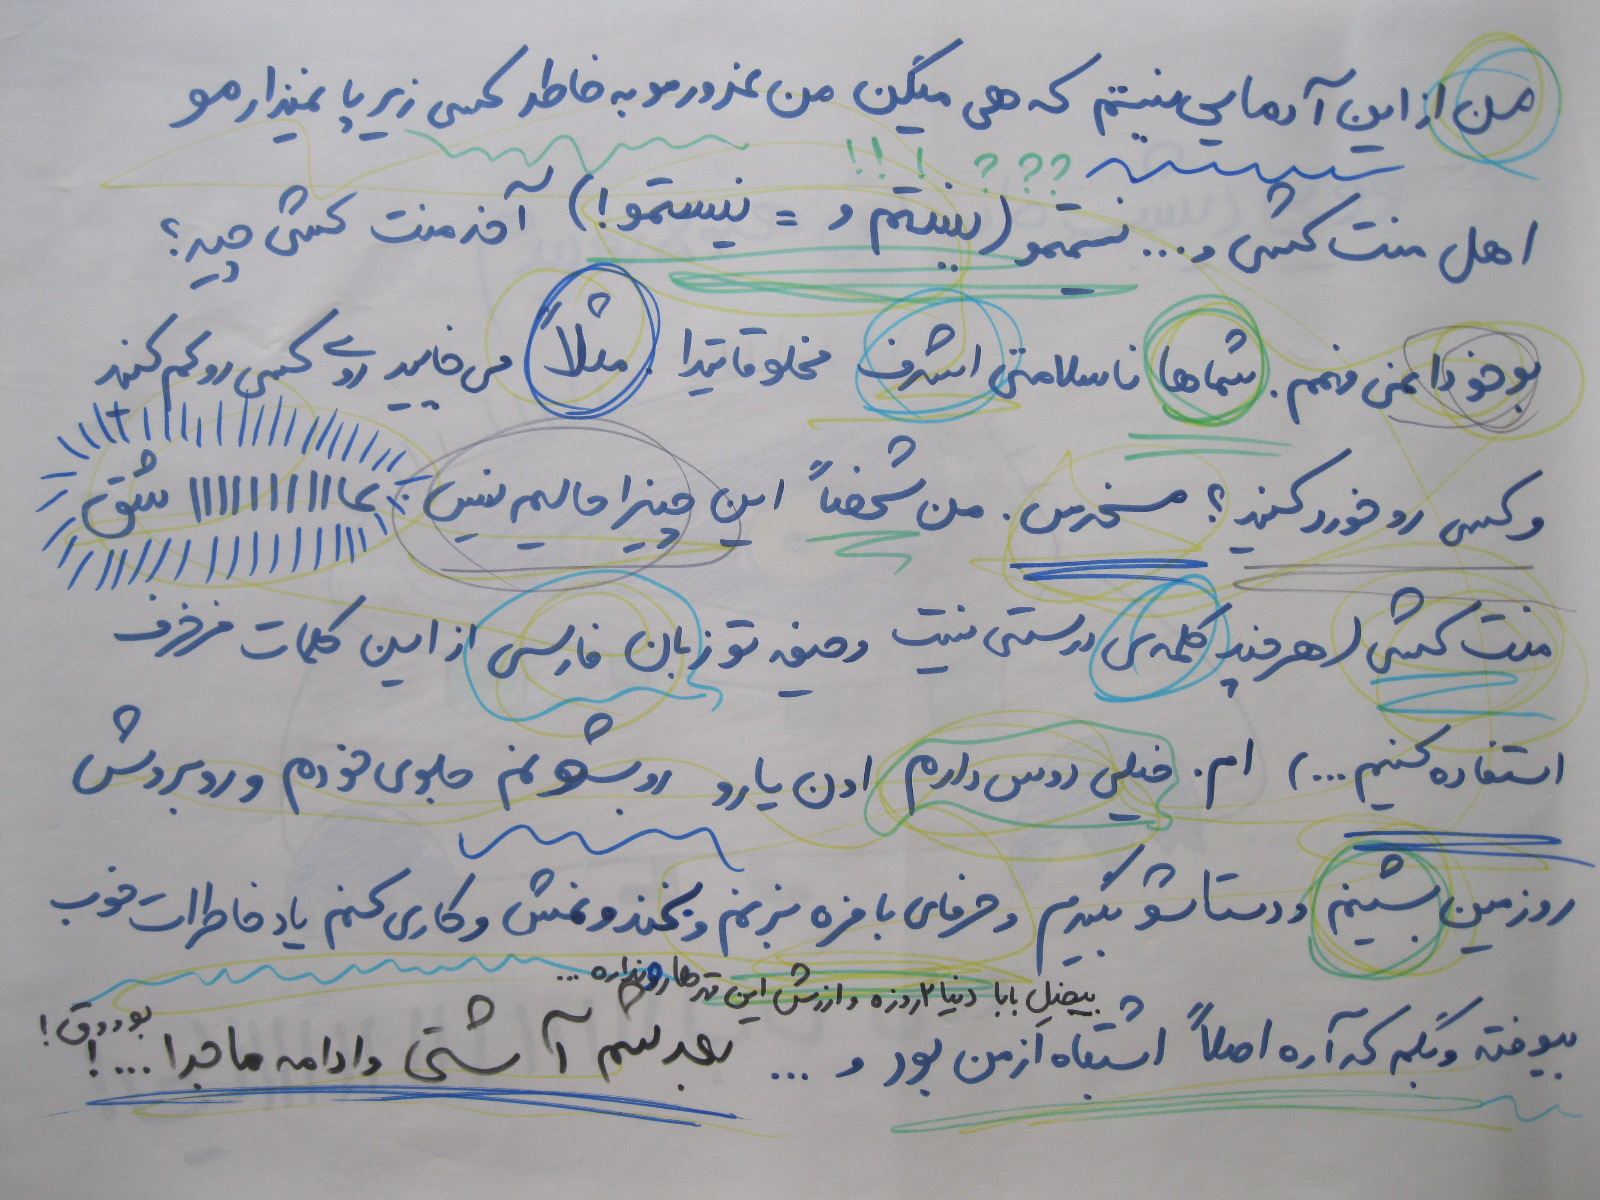 من از این آدمایی نیستم که هی میگن من غرورمو به خاطر کسی زیر پا نمیذارمو
!!! ???
اهل منت کشی و... نستمو (نیستم و = نیستمو!) آخه منت کشی چیه؟
بوخودا نمی فهمم. شماها ناسلامتی اشرف مخلوقاتیدا. مثلاً می خایید روی کسی رو کم کنید
و کسی رو خورد کنید؟ مسخرس. من شخصاً این چیزا حالیم نیس. عااااااااااا شق
منت کشی (هر چند کلمه ی درستی نیست و حیفه تو زبان فارسی از این کلمات مزخرف
استفاده کنیم...) ام. خیلی دوس دارم اون یارو رو بشونم جلوی خودم و رو بروش
رو زمین بشینم و دستاشو بگیرم و حرفای با مزه بزنم و بخندونمش و کاری کنم یاد خاطراات خوب
بیخیل بابا دنیا ۲ روزه و ارزش این قدرها رو نداره...
بیوفته و بگم که آره اصلاً اشتباه از من بود و ... بعدشم آشتی و ادامه ماجرا...!
بوووق!